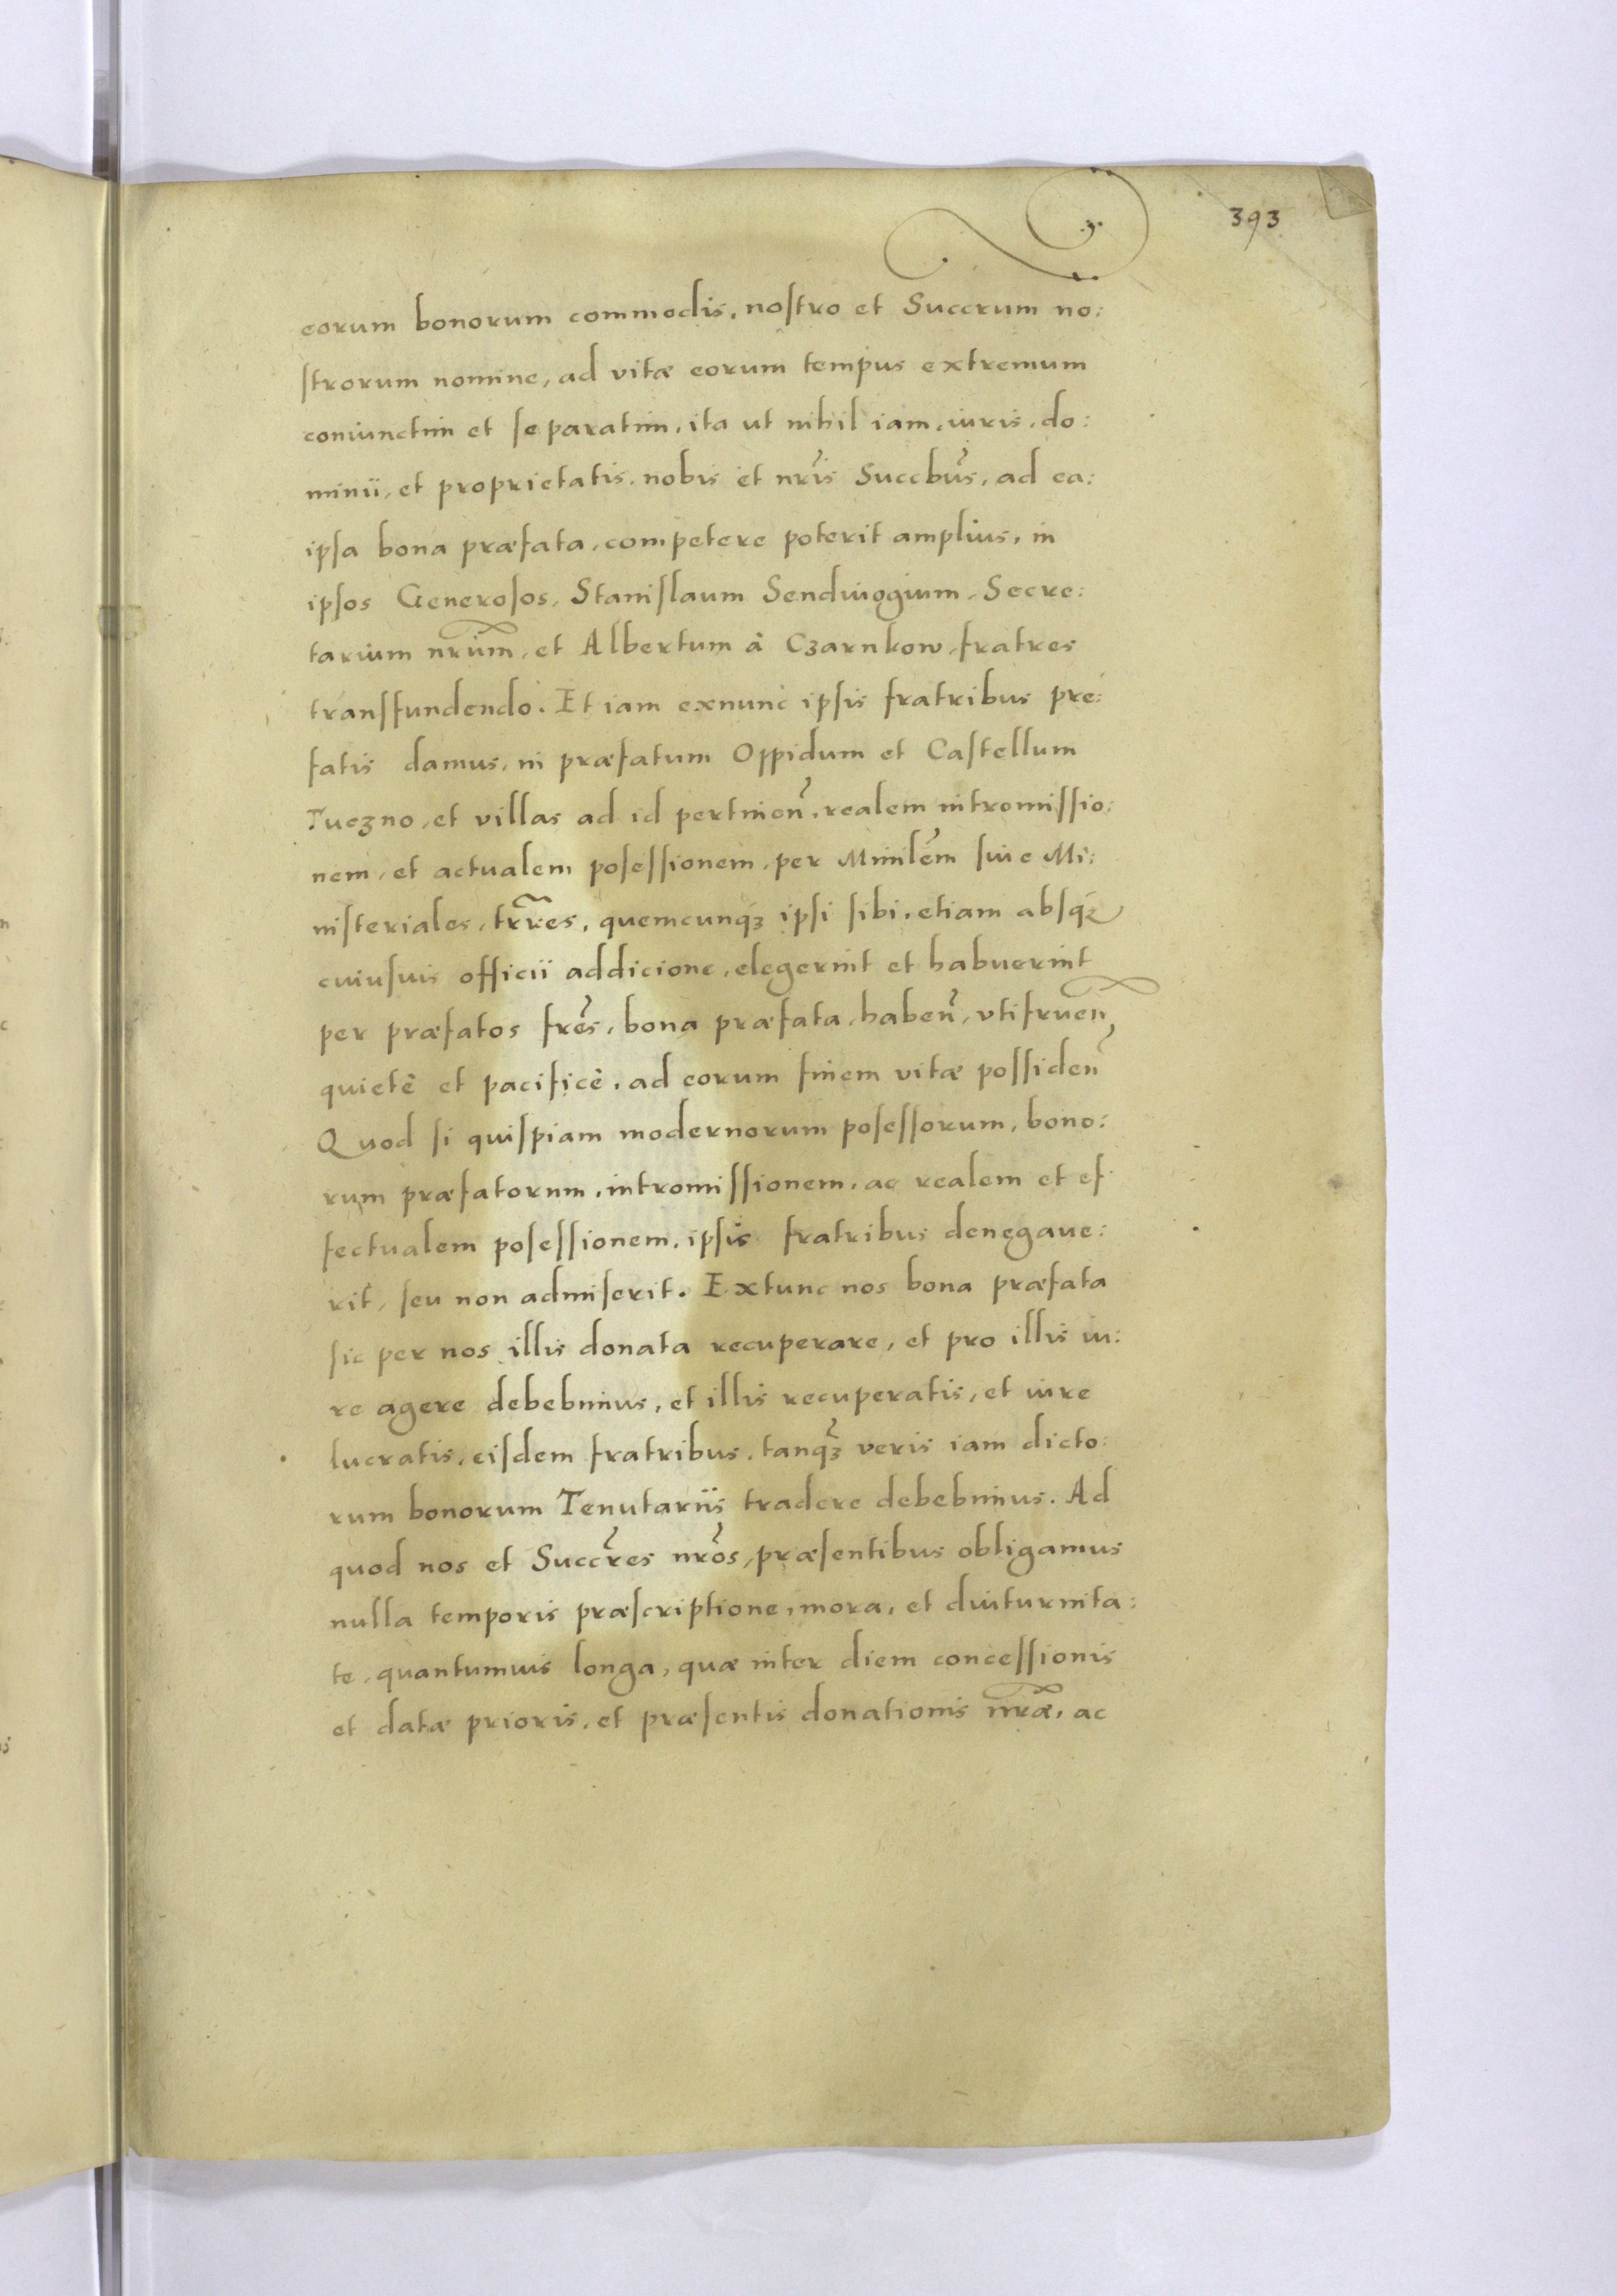 393
.3.
eorum bonorum commodis, nostro et Succrum no:
strorum nomine, ad vitæ eorum tempus extremum
coniunctim et separatim, ita ut nihil iam, iuris, do:
minii, et proprietatis, nobis et nr̃is Succbus̃, ad ea:
ipsa bona præfata, competere poterit amplius, in
ipsos Generosos, Stanislaum Sendiuogium, Secre:
tarium nrũm, et Albertum à Czarnkow, fratres
transfundendo. Et iam exnunc ipsis fratribus pre:
fatis damus, in præfatum Oppidum et Castellum
Tuczno, et villas ad id pertinen̄, realem intromissio:
nem, et actualem posessionem, per Minilēm siue Mi:
nisteriales, tr̄res, quemcunq₃ ipsi sibi, etiam absq₃
cuiusuis officii addicione, elegerint et habuerint
per præfatos fr̄es, bona præfata, haben̄, vtifruen̄
quietè et pacificè, ad eorum finem vitæ possiden̄
Quod si quispiam modernorum posessorum, bono:
rum præfatorum, intromissionem, ac realem et ef
fectualem posessionem, ipsis fratribus denegaue:
rit, seu non admiserit. Extunc nos bona præfata
sic per nos illis donata recuperare, et pro illis iu:
re agere debebimus, et illis recuperatis, et iure
lucratis, eisdem fratribus, tanq₃ veris iam dicto:
rum bonorum Tenutariis tradere debebimus. Ad
quod nos et Succr̄es nr̄os, præsentibus obligamus
nulla temporis præscriptione, mora, et diuturnita:
te, quantumuis longa, quæ inter diem concessionis
et datæ prioris, et præsentis donationis nr̄æ, ac